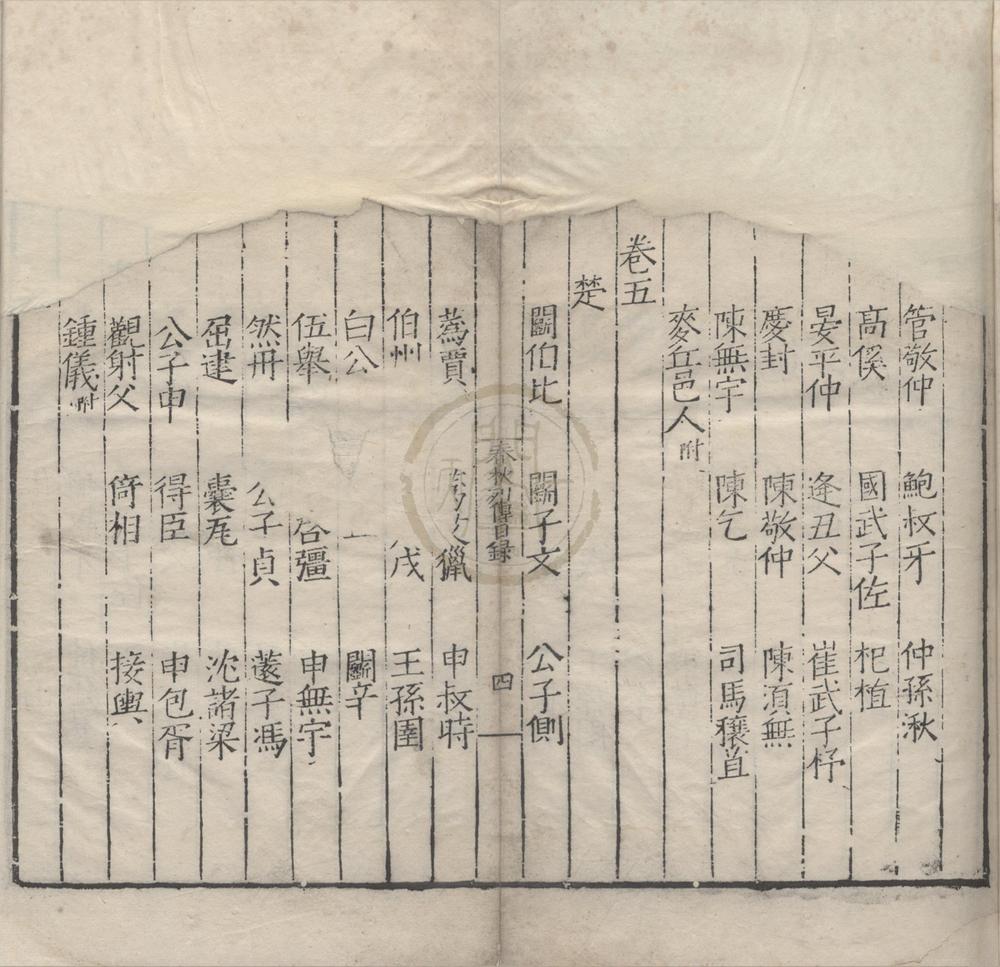 管敬仲 鮑叔牙 仲孫湫
高傒 國武子佐 杞植
晏平仲 逄丑父 崔武子杼
慶封 陳敬仲 陳湏無
陳無宇 陳乞 司馬穰苴
麥丘邑人附
卷五
楚
鬭伯比 鬭子文 公子側
春秋列傳目録 四
蒍賈 獵 申叔時
伯州 戌 王孫圉
白公 鬭辛
伍舉 啓彊 申無宇
然丹 公子貞 薳子馮
屈建 囊瓦 沈諸梁
公子申 得臣 申包胥
觀射父 倚相 接輿
鍾儀附